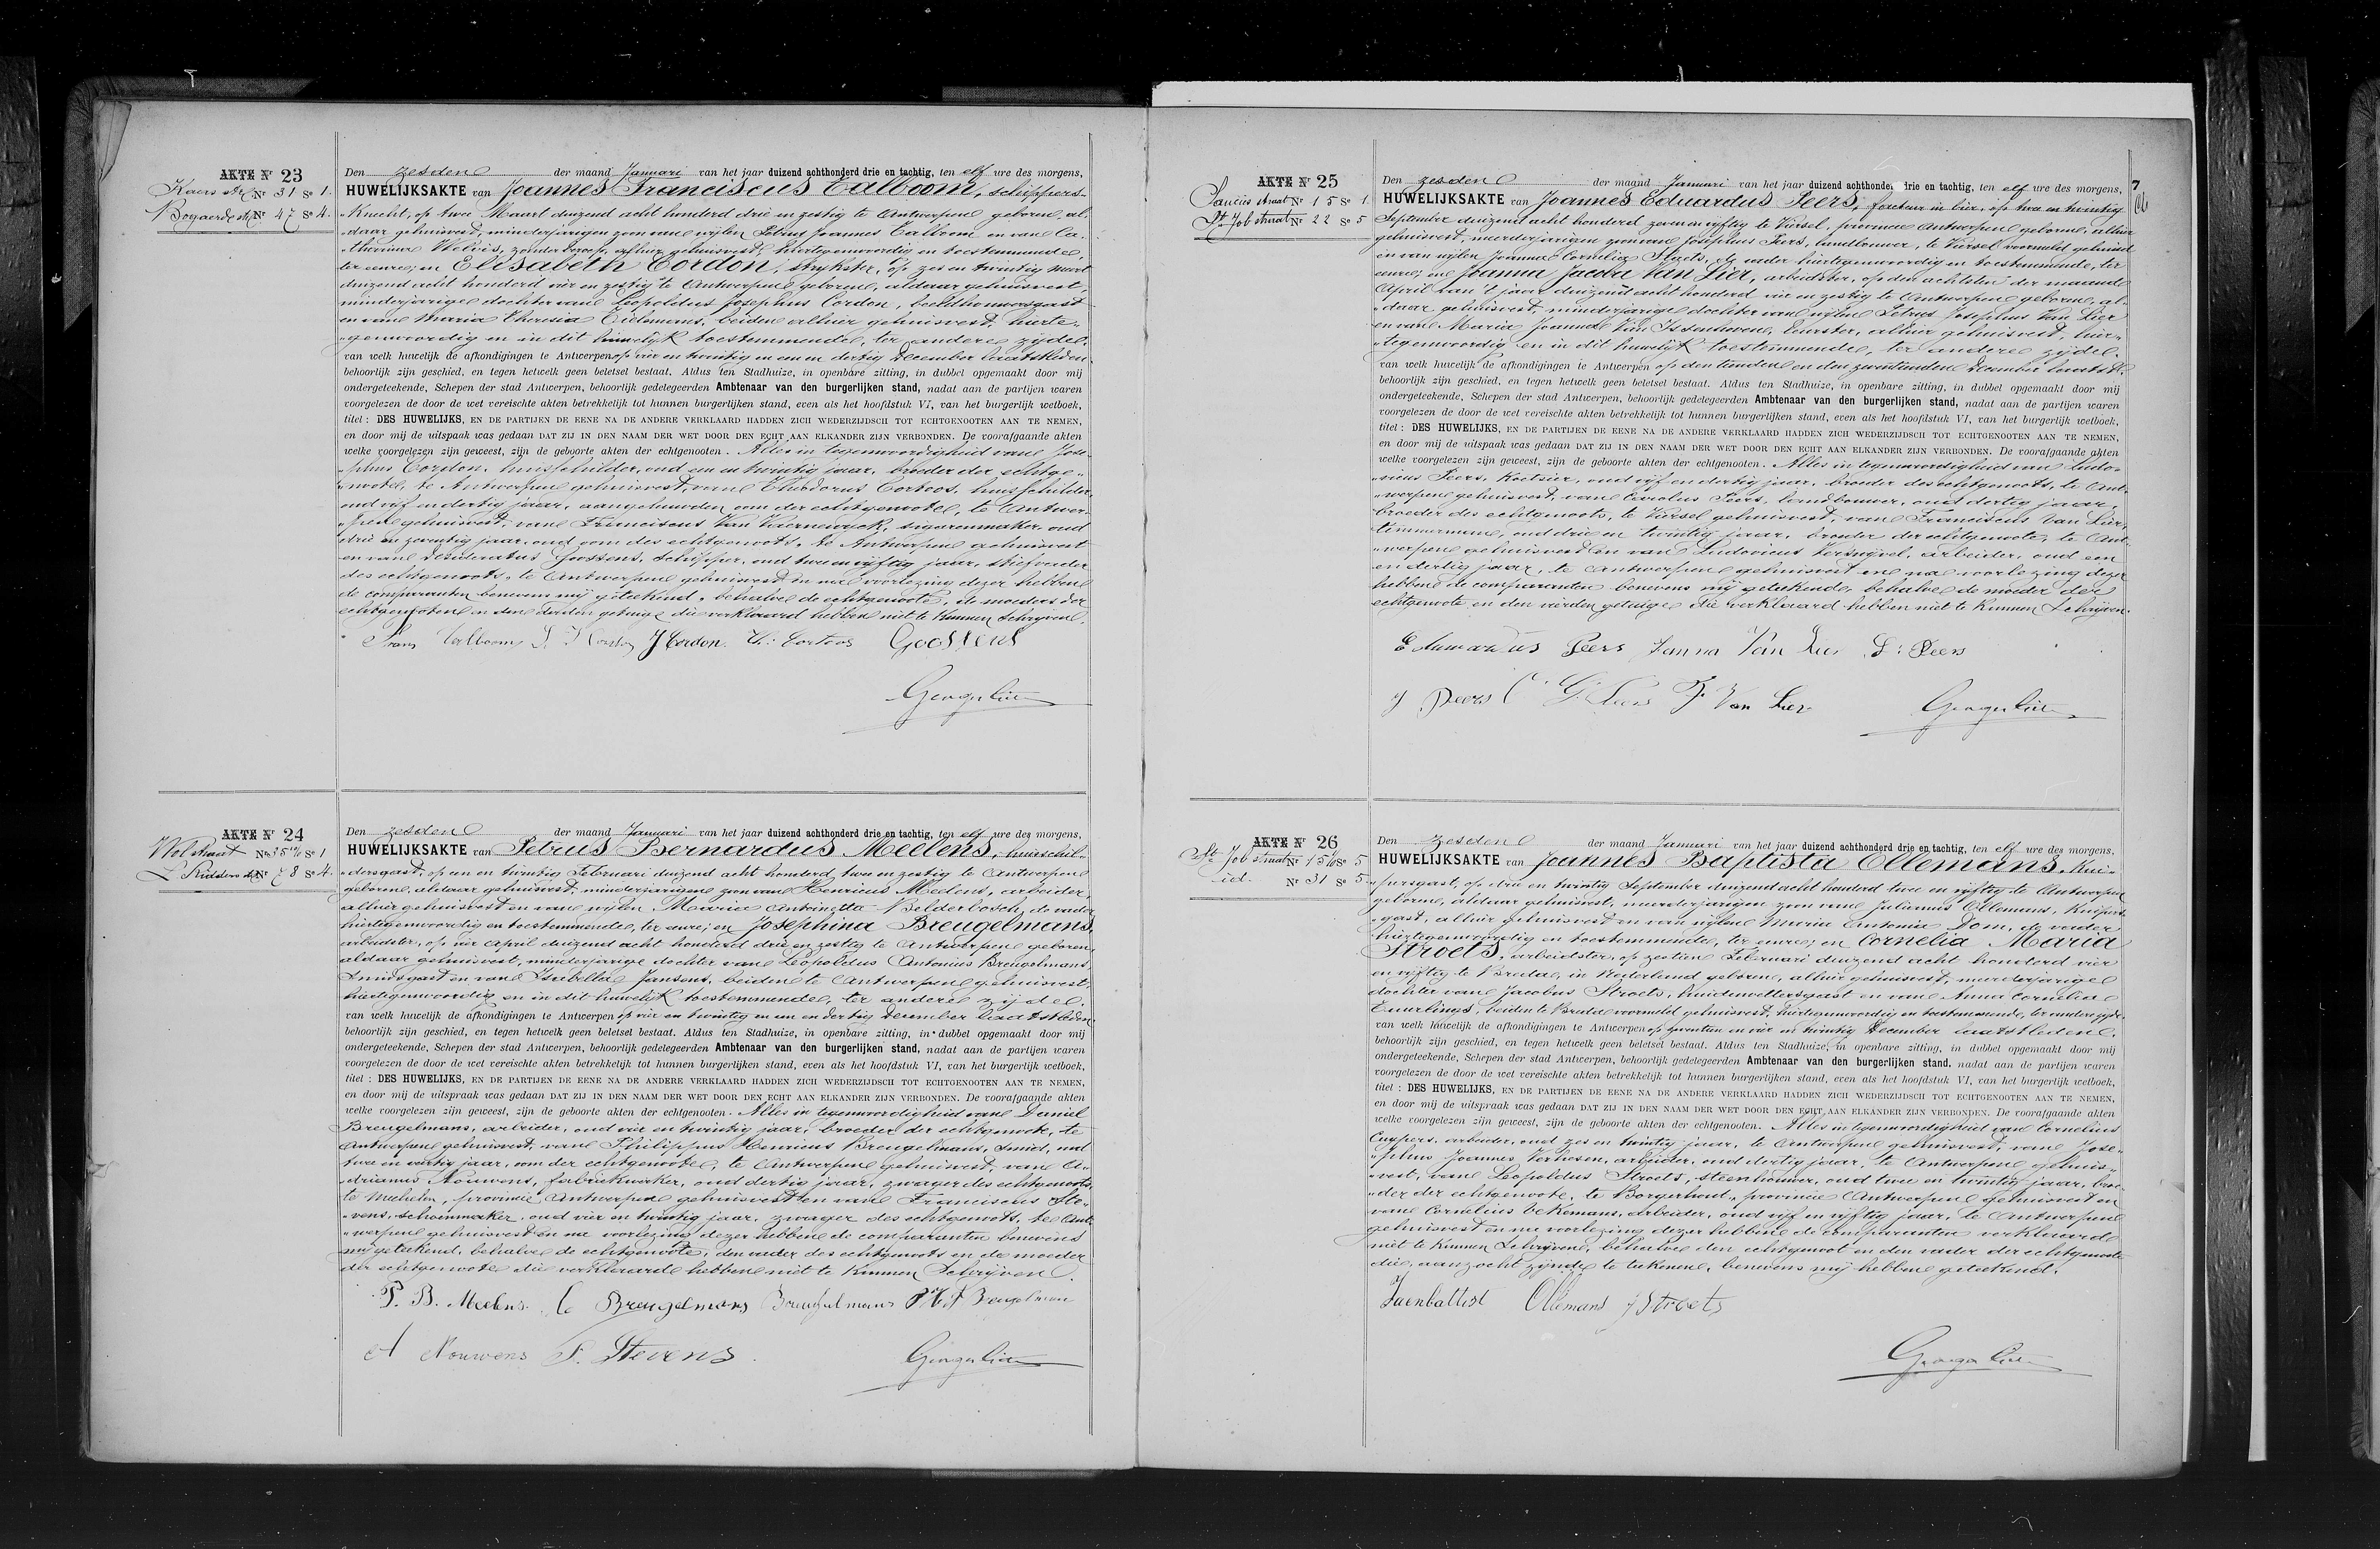 AKTE Nr 23
Nr 31 Se 1.
Bogaerdestr Nr 47 Se 4.
Den zesden der maand Januari van het jaar duizend achthonderd drie en tachtig, ten elf ure des morgens,
HUWELIJKSAKTE van Joannes Franciscus Talboom, schippers-
knecht, op twee Maart duizend acht honderd drie en zestig te Antwerpen geboren, al-
daar gehuisvest, minderjarigen zoon van wijlen Petrus Joannes Talboom en van Ca-
tharina zonder beroep, alhier gehuisvest, hiertegenwoordig en toestemmende,
ter eenre; en Elisabeth Cordon, strijkster, op zes en twintig maart
duizend acht honderd vier en zestig te Antwerpen geboren, aldaar gehuisvest,
minderjarige dochter van Leopoldus Josephus Cordon, beeldhouwersgast
en van Maria Theresia Tielemans, beiden alhier gehuisvest, hierte-
genwoordig en in dit huwelijk toestemmende, ter andere zijde.
van welk huwelijk de afkondigingen te Antwerpen op vier en twintig en een en dertig December laatstleden
behoorlijk zijn geschied, en tegen hetwelk geen beletsel bestaat. Aldus ten Stadhuize, in openbare zitting, in dubbel opgemaakt door mij
ondergeteekende, Schepen der stad Antwerpen, behoorlijk gedelegeerden Ambtenaar van den burgerlijken stand, nadat aan de partijen waren
voorgelezen de door de wet vereischte akten betrekkelijk tot hunnen burgerlijken stand, even als het hoofdstuk VI, van het burgerlijk wetboek,
titel : DES HUWELIJKS, EN DE PARTIJEN DE EENE NA DE ANDERE VERKLAARD HADDEN ZICH WEDERZIJDSCH TOT ECHTGENOOTEN AAN TE NEMEN,
en door mij de uitspaak was gedaan DAT ZIJ IN DEN NAAM DER WET DOOR DEN ECHT AAN ELKANDER ZIJN VERBONDEN. De voorafgaande akten
welke voorgelezen zijn geweest, zijn de geboorte akten der echtgenooten. Alles in tegenwoordigheid van Jose-
phus Cordon, huisschilder, oud een en twintig jaar, broeder der echtge-
noote, te Antwerpen gehuisvest, van Theodorus Cortoos, huisschilder,
oud vijf en dertig jaar, aangehuwden oom der echtgenoote, te Antwer-
pen gehuisvest, van Franciscus Van Kaerneweyck, sigarenmaker, oud
drie en zeventig jaar, oud oom des echtgenoots, te Antwerpen gehuisvest
en van Desideratus Goossens, schipper, oud twee en vijftig jaar, stiefvader
des echtgenoots, te Antwerpen gehuisvest en na voorlezing dezer hebben
de comparanten benevens mij geteekend, behalve de echtgenoote, de moeders der
echtgenooten en den derden getuige die verklaard hebben niet te kunnen schrijven.
Frans Talboom J Cordon. Th: Cortoos Goossens
AKTE Nr 24
Wolstraat Nr 35 Se 1
L Ridders str Nr 78 Se 4.
Den zesden der maand Januari van het jaar duizend achthonderd drie en tachtig, ten elf ure des morgens,
HUWELIJKSAKTE van Petrus Bernardus Meelens, huisschil-
dersgast, op een en twintig Februari duizend acht honderd twee en zestig te Antwerpen
geboren, aldaar gehuisvest, minderjarigen zoon van Henricus Meelens, arbeider,
alhier gehuisvest en van wijlen Maria Antoinetta Belderbosch, de vader
hiertegenwoordig en toestemmende, ter eenre; en Josephina Breugelmans,
arbeidster, op vier April duizend acht honderd drie en zestig te Antwerpen geboren,
aldaar gehuisvest, minderjarige dochter van Leopoldus Antonius Breugelmans,
smidsgast en van Isabella Jansens, beiden te Antwerpen gehuisvest,
hiertegenwoordig en in dit huwelijk toestemmende, ter andere zijde.
van welk huwelijk de afkondigingen te Antwerpen op vier en twintig en een en dertig December laatstleden
behoorlijk zijn geschied, en tegen hetwelk geen beletsel bestaat. Aldus ten Stadhuize, in openbare zitting, in dubbel opgemaakt door mij
ondergeteekende, Schepen der stad Antwerpen, behoorlijk gedelegeerden Ambtenaar van den burgerlijken stand, nadat aan de partijen waren
voorgelezen de door de wet vereischte akten betrekkelijk tot hunnen burgerlijken stand, even als het hoofdstuk VI, van het burgerlijk wetboek,
titel : DES HUWELIJKS, EN DE PARTIJEN DE EENE NA DE ANDERE VERKLAARD HADDEN ZICH WEDERZIJDSCH TOT ECHTGENOOTEN AAN TE NEMEN,
en door mij de uitspraak was gedaan DAT ZIJ IN DEN NAAM DER WET DOOR DEN ECHT AAN ELKANDER ZIJN VERBONDEN. De voorafgaande akten
welke voorgelezen zijn geweest, zijn de geboorte akten der echtgenooten. Alles in tegenwoordigheid van Daniel
Breugelmans, arbeider, oud vier en twintig jaar, broeder der echtgenoote, te
Antwerpen gehuisvest, van Philippus Henricus Breugelmans, smid, oud
twee en veertig jaar, oom der echtgenoote, te Antwerpen gehuisvest, van A-
drianus Nouwens, fabriekwerker, oud dertig jaar, zwager des echtgenoots,
te Mechelen, provincie Antwerpen gehuisvest en van Franciscus Ste-
vens, schoenmaker, oud vier en twintig jaar, zwager des echtgenoots, te Ant-
werpen gehuisvest en na voorlezing dezer hebben de comparanten benevens
mij geteekend, behalve de echtgenoote, den vader des echtgenoots en de moeder
der echtgenoote die verklaard hebben niet te kunnen schrijven.
P. B. Meelens. Breugelmans Breugelmans Breugelmans
A Nouwens F. Stevens
AKTE Nr 25
straat Nr 15 Se 1.
St. Job straat Nr 22 Se 5
7
Den zesden der maand Januari van het jaar duizend achthonde rie en tachtig, ten elf ure des morgens,
HUWELIJKSAKTE van Joannes Eduardus Peers, op twee en twintig
September duizend acht honderd zeven en vijftig te Viersel, provincie Antwerpen geboren, alhier
gehuisvest, meerderjarigen zoon van Josephus Peers, landbouwer, te Viersel voormeld gehuisvest
en van wijlen Joanna Cornelia Staets, de vader hiertegenwoordig en toestemmende, ter
eenre; en Joanna Jacoba Van Lier, arbeidster, op den achtsten der maand
April van 't jaar duizend acht honderd vier en zestig te Antwerpen geboren, al-
daar gehuisvest, minderjarige dochter van wijlen Petrus Josephus Van Lier
en van Maria Joanna Van Issenhoven, alhier gehuisvest, hier-
tegenwoordig en in dit huwelijk toestemmende, ter andere zijde.
van welk huwelijk de afkondigingen te Antwerpen op den tienden en den zeventienden December laatstl.
behoorlijk zijn geschied, en tegen hetwelk geen beletsel bestaat. Aldus ten Stadhuize, in openbare zitting, in dubbel opgemaakt door mij
ondergeteekende, Schepen der stad Antwerpen, behoorlijk gedelegeerden Ambtenaar van den burgerlijken stand, nadat aan de partijen waren
voorgelezen de door de wet vereischte akten betrekkelijk tot hunnen burgerlijken stand, even als het hoofdstuk VI, van het burgerlijk wetboek,
titel : DES HUWELIJKS, EN DE PARTIJEN DE EENE NA DE ANDERE VERKLAARD HADDEN ZICH WEDERZIJDSCH TOT ECHTGENOOTEN AAN TE NEMEN,
en door mij de uitspaak was gedaan DAT ZIJ IN DEN NAAM DER WET DOOR DEN ECHT AAN ELKANDER ZIJN VERBONDEN. De voorafgaande akten
welke voorgelezen zijn geweest, zijn de geboorte akten der echtgenooten. Alles in tegenwoordigheid van Ludo-
vicus Peers, koetsier, oud vijf en dertig jaar, broeder des echtgenoots, te Ant-
werpen gehuisvest, van Carolus Peers, landbouwer, oud dertig jaar,
broeder des echtgenoots, te Viersel gehuisvest, van Franciscus Van Lier,
timmerman, oud drie en twintig jaar, broeder der echtgenoote, te Ant-
werpen gehuisvest en van Ludovicus Verswyvel, arbeider, oud een
en dertig jaar, te Antwerpen gehuisvest en na voorlezing dezer
hebben de comparanten benevens mij geteekend, behalve de moeder der
echtgenoote en den vierden getuige die verklaard hebben niet te kunnen schrijven.
Eduwardus Peers Janna Van Lier L: Peers
J Peers Peers F. Van Lier
AKTE Nr 26
St Job straat Nr 15 Se 5
id. Nr 31 Se 5.
Den zesden der maand Januari van het jaar duizend achthonderd drie en tachtig, ten elf ure des morgens,
HUWELIJKSAKTE van Joannes Baptista Ollemans, kui-
persgast, op drie en twintig September duizend acht honderd twee en vijftig te Antwerpen
geboren, aldaar gehuisvest, meerderjarigen zoon van Julianus Ollemans, kuipers-
gast, alhier gehuisvest en van wijlen Maria Antonia Dom, de vader
hiertegenwoordig en toestemmende, ter eenre; en Cornelia Maria
Stroets, arbeidster, op zestien Februari duizend acht honderd vier
en vijftig te Breda, in Nederland geboren, alhier gehuisvest, meerderjarige
dochter van Jacobus Stroets, huidenvettersgast en van Anna Cornelia
beiden te Breda voormeld gehuisvest, hiertegenwoordig en toestemmende, ter andere zijde.
van welk huwelijk de afkondigingen te Antwerpen op zeventien en vier en twintig December laatstleden.
behoorlijk zijn geschied, en tegen hetwelk geen beletsel bestaat. Aldus ten Stadhuize, in openbare zitting, in dubbel opgemaakt door mij
ondergeteekende, Schepen der stad Antwerpen, behoorlijk gedelegeerden Ambtenaar van den burgerlijken stand, nadat aan de partijen waren
voorgelezen de door de wet vereischte akten betrekkelijk tot hunnen burgerlijken stand, even als het hoofdstuk VI, van het burgerlijk wetboek,
titel : DES HUWELIJKS, EN DE PARTIJEN DE EENE NA DE ANDERE VERKLAARD HADDEN ZICH WEDERZIJDSCH TOT ECHTGENOOTEN AAN TE NEMEN,
en door mij de uitspraak was gedaan DAT ZIJ IN DEN NAAM DER WET DOOR DEN ECHT AAN ELKANDER ZIJN VERBONDEN. De voorafgaande akten
welke voorgelezen zijn geweest, zijn de geboorte akten der echtgenooten. Alles in tegenwoordigheid van Cornelius
Cuypers, arbeider, oud zes en twintig jaar, te Antwerpen gehuisvest, van Jose-
phus Joannes Verhesen, arbeider, oud dertig jaar, te Antwerpen gehuis-
vest, van Leopoldus Stroets, steenhouwer, oud twee en twintig jaar, broe-
der der echtgenoote, te Borgerhout, provincie Antwerpen gehuisvest en
van Cornelius Vekemans, arbeider, oud vijf en vijftig jaar, te Antwerpen
gehuisvest en na voorlezing dezer hebben de comparanten verklaard
niet te kunnen schrijven, behalve den echtgenoot en den vader der echtgenoote
die, aanzocht zijnde te teekenen, benevens mij hebben geteekend.
Jaenbattist Ollemans J Stroets